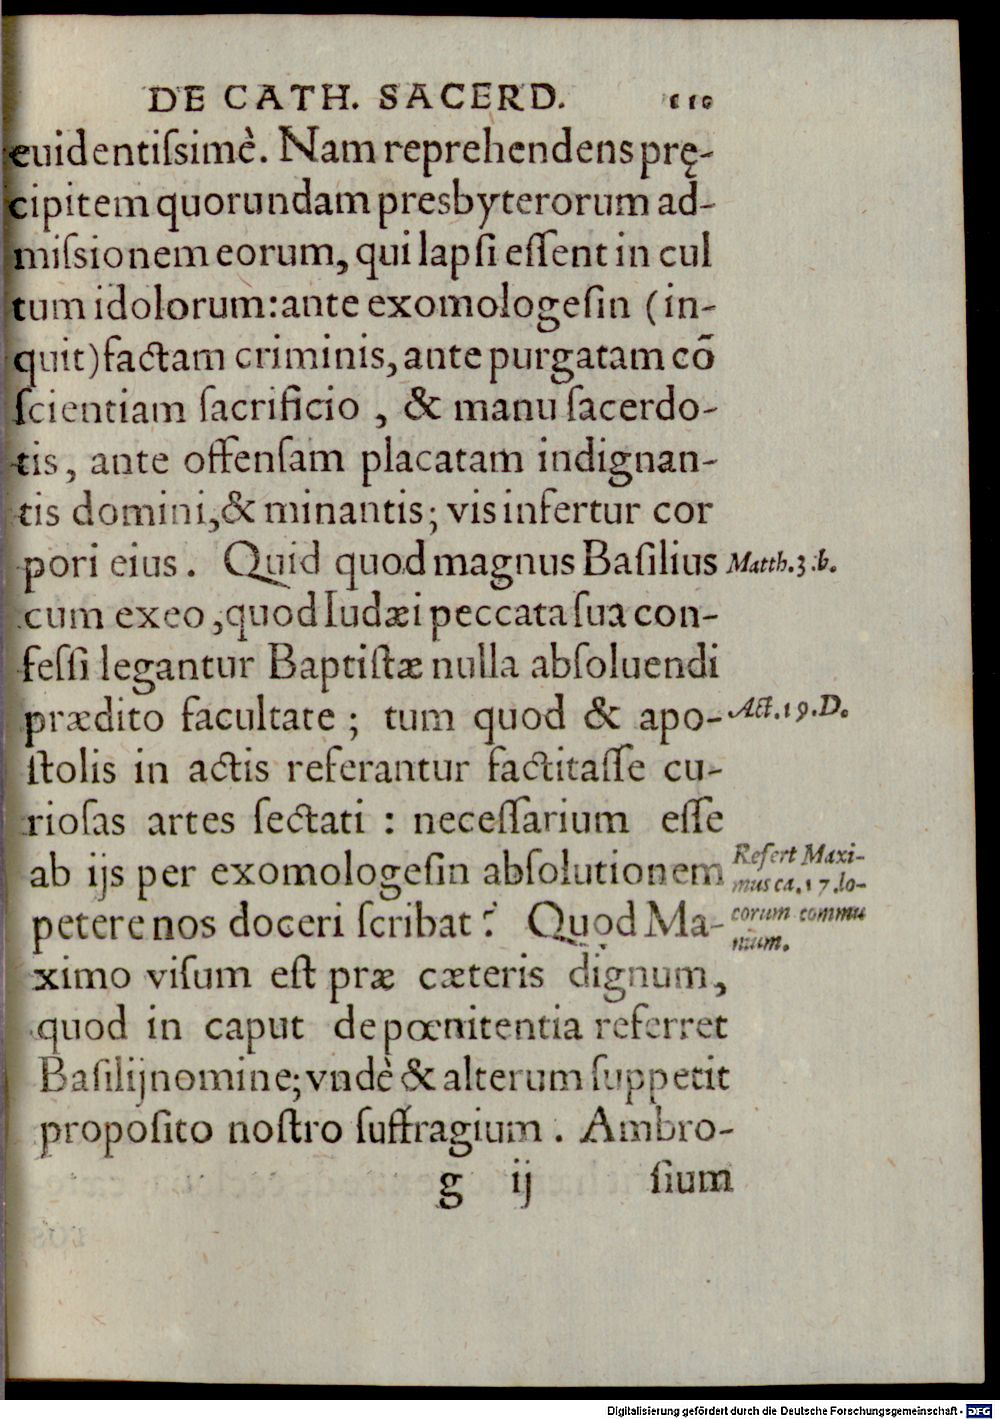 DE CATH. SACERD.
euidentiſsimè. Nam reprehendens prę-
cipitem quorundam presbyterorum ad-
miſsionem eorum, qui lapſi eſſent in cul
tum idolorum: ante exomologeſin (in-
quit) factam criminis, ante purgatam cō
ſcientiam ſacrificio, & manu ſacerdo-
tis, ante offenſam placatam indignan-
tis domini, & minantis; vis infertur cor
pori eius. Quid quod magnus Baſilius
Matth.3.b.
cum ex eo, quod Iudæi peccata ſua con-
feſſi legantur Baptiſtæ nulla abſoluendi
prædito facultate; tum quod & apo-
Act.19.D.
ſtolis in actis referantur factitaſſe cu-
rioſas artes ſectati: neceſſarium eſſe
ab ijs per exomologeſin abſolutionem
petere nos doceri ſcribat? Quod Ma-
Refert Maxi-
mus ca.17.lo-
corum commu
nium.
ximo viſum eſt præ cæteris dignum,
quod in caput de pœnitentia referret
Baſilij nomine; vndè & alterum ſuppetit
propoſito noſtro ſuffragium. Ambro-
g ij ſium
Digitalisierung gefördert durch die Deutsche Forschungsgemeinschaft - DFG